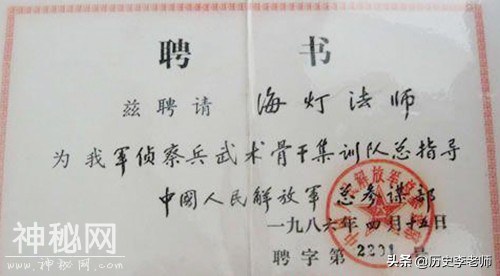 聘书
兹聘请 海灯法师
为我军侦察兵武术骨干集训队总指导
中國人民解放軍 总参谋部
一九八六年四月十五日
聘字第2201号
神秘网
www.shenmw.com
头条 @历史李老师